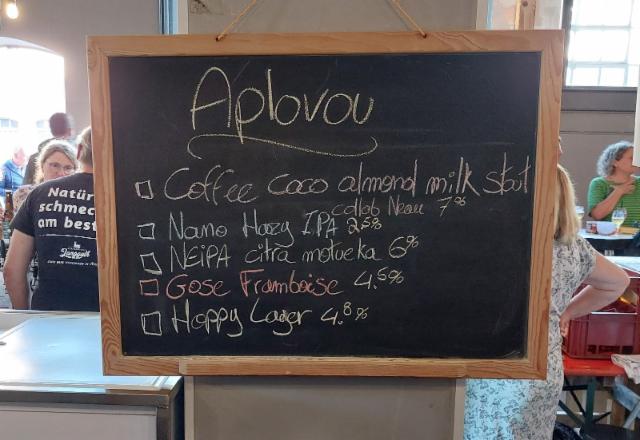 Aplovou
Coffee coco almond milk stout
collab Neau 7%
Nano Hazy IPA 2.5%
NEiPA citra motueka 6%
Gose Framboise 4.5%
Hoppy Lager 4.8%
Natür
schmec
am best